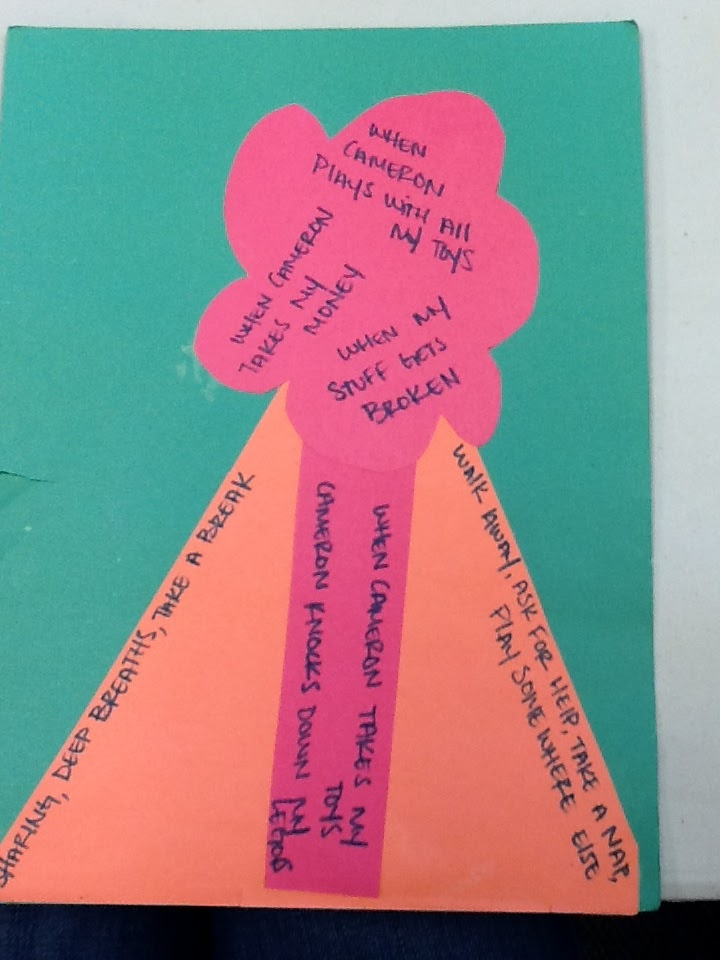 WHEN
CAMERON
PLAYS WITH All
MY TOYS
WHEN CAMERON
TAKES MY
MONEY
WHEN MY
STUFF GETS
BROKEN
WHEN CAMERON TAKES MY
TOYS
CAMERON KNOCKS DOWN MY
LEGOS
SHARING, DEEP BREATHS, TAKE A BREAK
WALK AWAY, ASK FOR HELP, TAKE A NAP,
PLAY SOMEWHERE ELSE